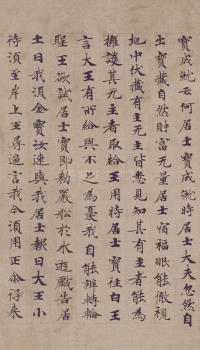 寶成就云何居士寶成就時居士大夫忽然自
出寶藏自然財富无量居士宿福眼能徹視
地中伏藏有主无主皆悉見知其有主者能為
擁護其无主者取給王用時居士寶往白王
言大王有所給與不足為憂我自能辦轉輪
聖王欲試居士寶即勅嚴船於水遊戲告居
士曰我須金寶汝速與我居士報曰大王小
待須至岸上王尋逼言我今須用正尒得來